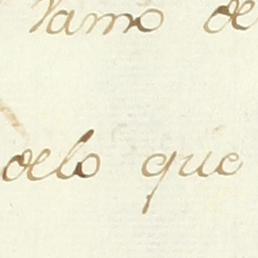 tamo de
delo que